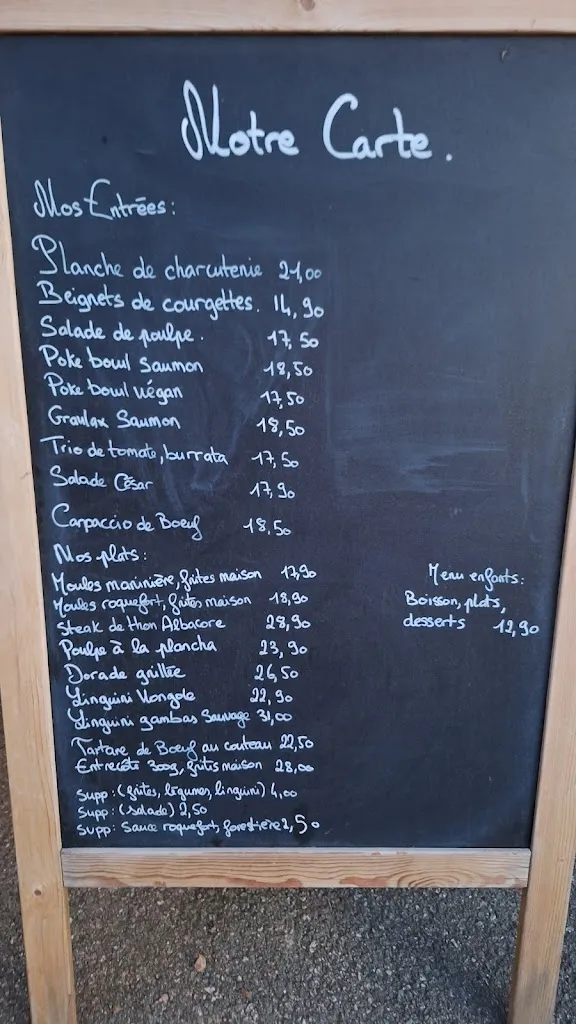 Notre Carte.
Mos Entrées:
Planche de charcuterie 21,00
Beignets de courgettes. 14,90
Salade de poulpe. 17,50
Poke bowl Saumon 18,50
Poke bowl végan 17,50
Gravlax Saumon 18,50
Trio de tomate, burrata 17,50
Salade César 17,90
Carpaccio de Boeuf 18,50
Nos plats:
Moules marinière, frites maison 17,90
Moules roquefort, frites maison 18,90
Steak de thon Albacore 28,90
Poulpe à la plancha 23,90
Dorade grillée 26,50
Linguini Vongole 22,90
Linguini gambas Sauvage 31,00
Tartare de Boeuf au couteau 22,50
Entrecôte 300g, frites maison 28,00
Supp: (frites, légumes, linguini) 4,00
Supp: (salade) 2,50
Supp: Sauce roquefort, forestière 2,50
Menu enfants:
Boisson, plats,
desserts 12,90